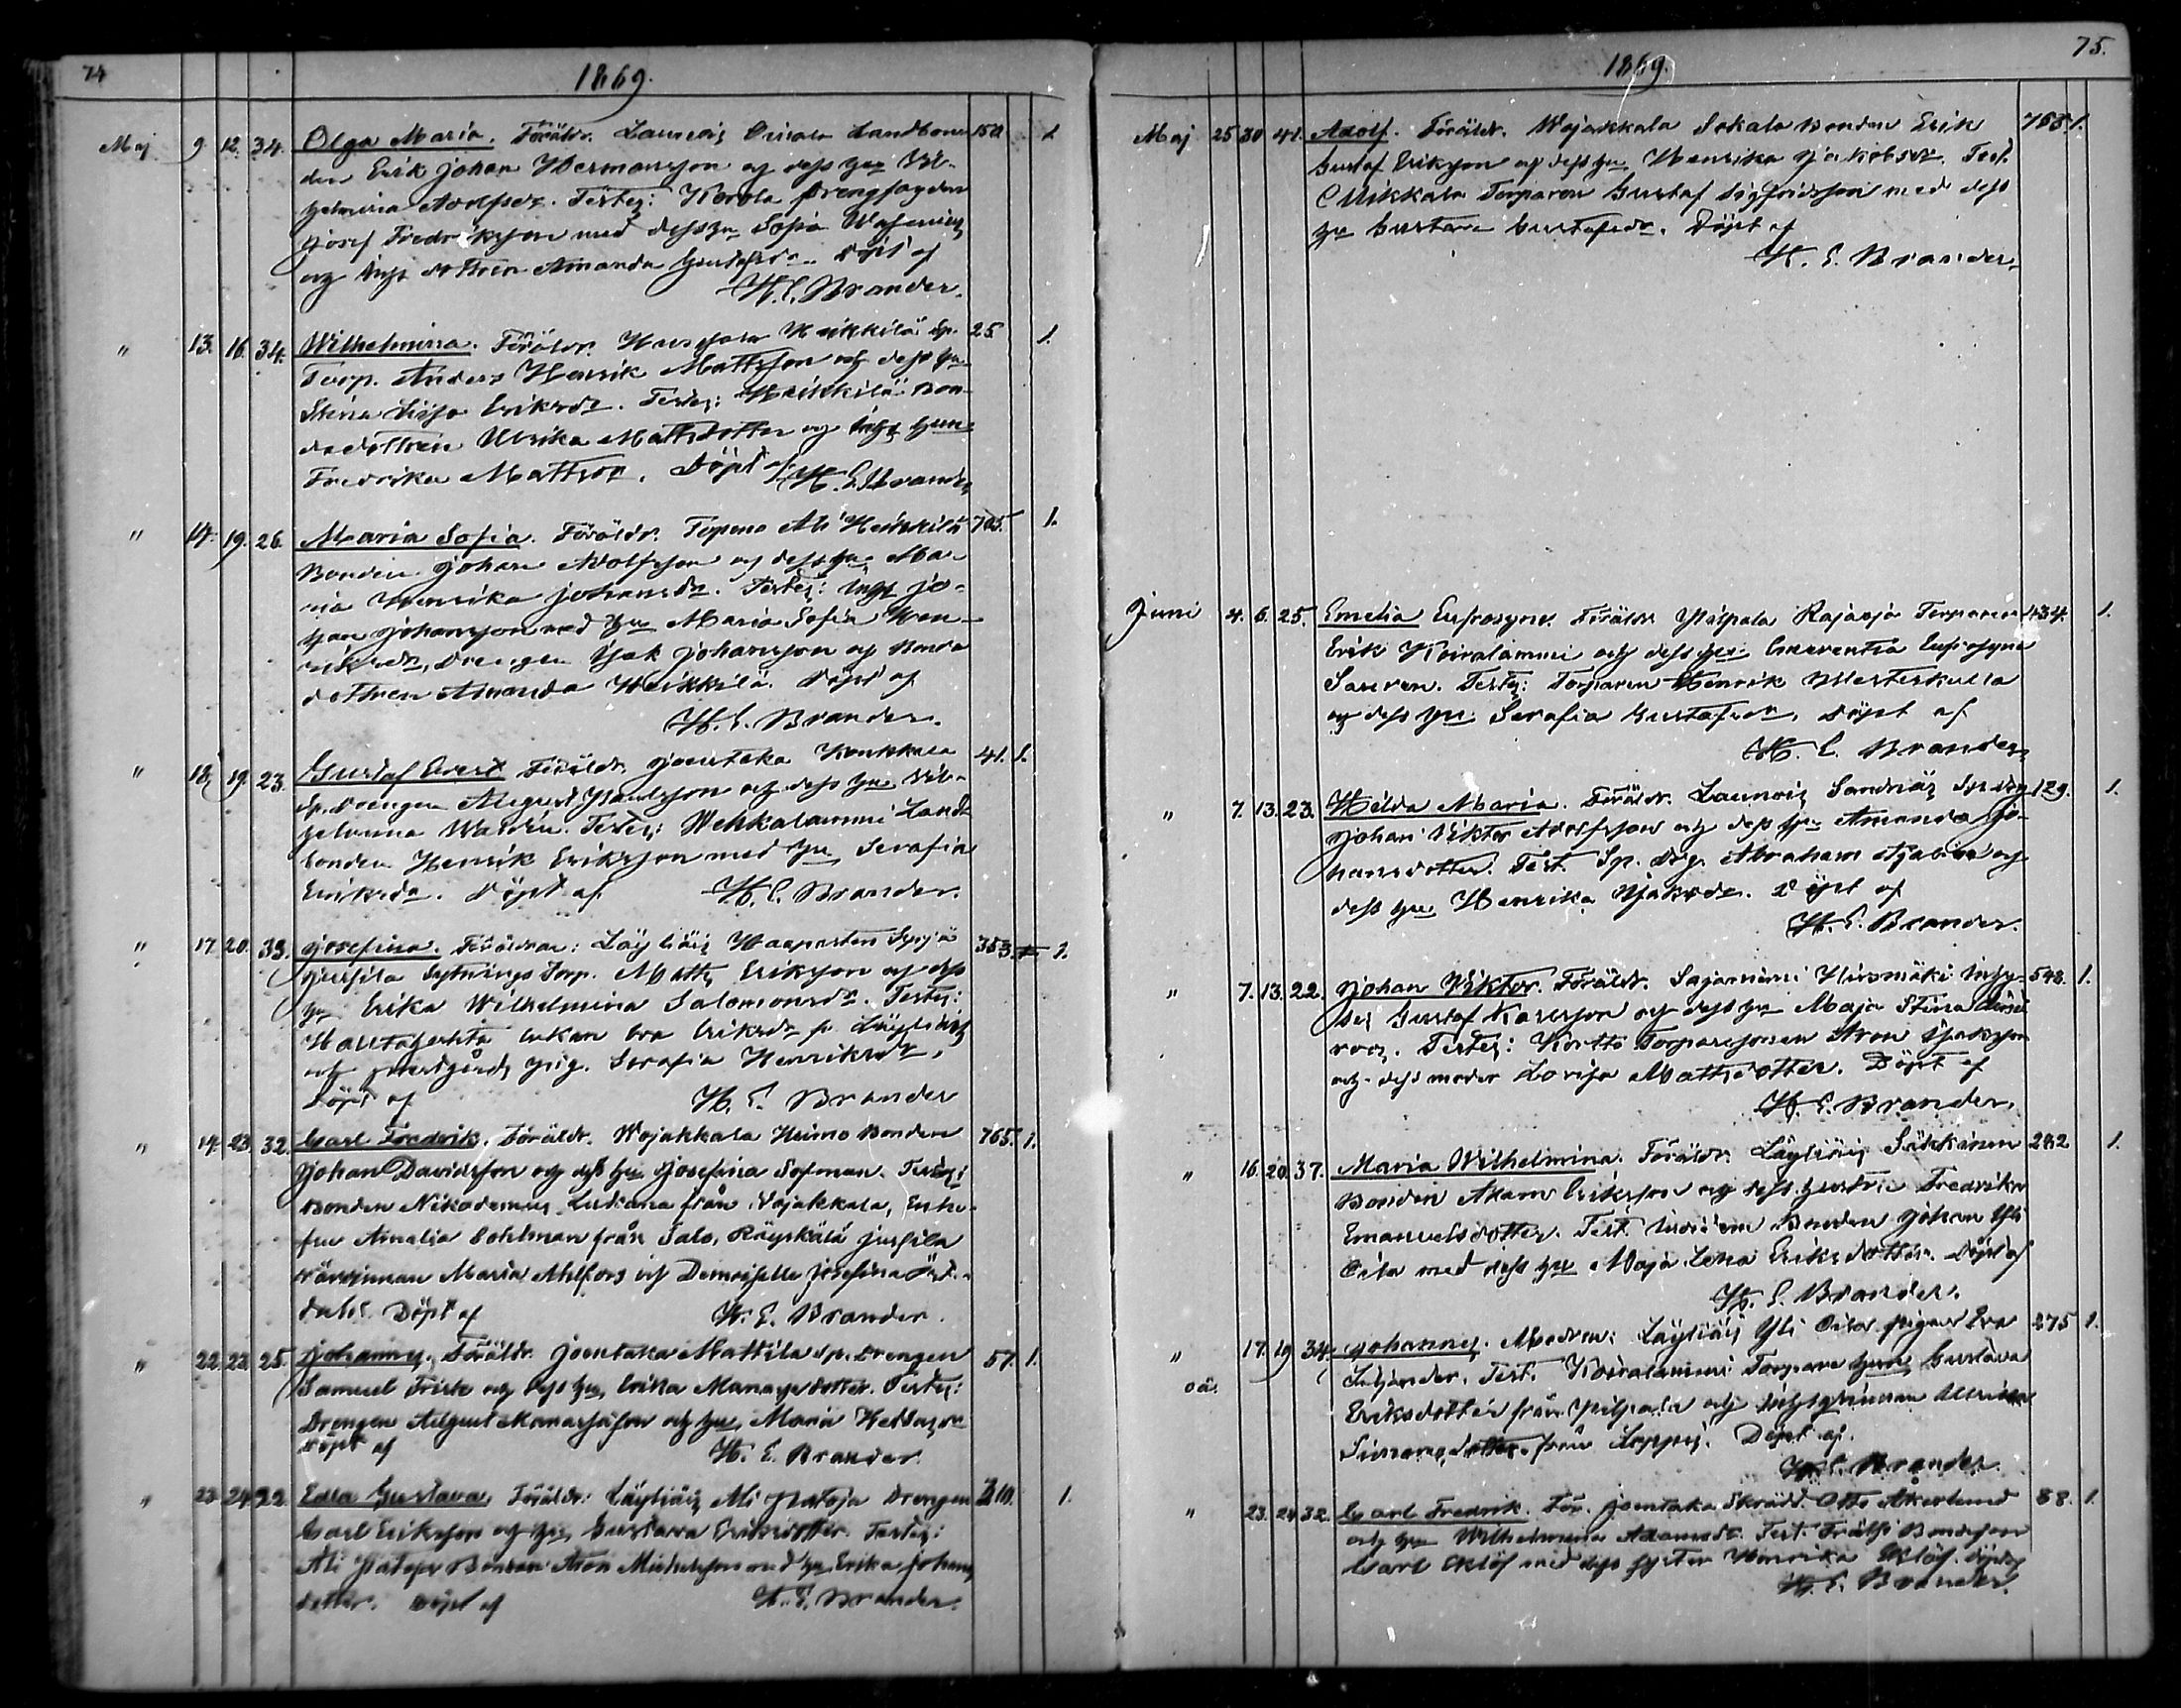 74
1869.
Maj 9. 12. 34. Olga Maria. Föräldr. Launois Landbon- 150 1
den Erik Johan Hermansson og dess hu Vil-
helmina Adolfsdr. Testes: Drengfogden
Josef Fredriksson med dess hu Sofia
og Inhs dottren Amanda Gustafsdr. Döpt af
H. E. Brander.
" 13. 16. 34. Wilhelmina. Föräldr. Heikkilä Sp. 25 1.
Torp. Anders Henrik Mattsson och dess hu
Stina Lisa Eriksdr. Testes: Heikkilä Bon-
dedottren Ulrika Mattsdotter og Inhs hun
Fredrika Mattsdr. Döpt af H. E. Brander
" 14. 19. 26. Maria Sofia. Föräldr. Topeno Ali Heikkilä 705. 1.
Bonden Johan Adolfsson og dess hu Ma-
ria Henrika Johansdr. Testes: Inhs Jo-
han Johansson med hu Maria Sofia Hen-
riksdr, Drengen Isak Johansson og Bonde
dottren Amanda Heikkilä. Döpt af
H. E. Brander.
" 18. 19. 23. Gustaf Evert Föräldr. Joentaka Konkkala 41. 1.
Sp. Drengen August Paulsson og dess hu Vil-
helmina Walden. Testes: Wehkalammi Land-
bonden Henrik Eriksson med hu Serafia
Eriksdr. Döpt af H. E. Brander.
" 17. 20. 33. Josefina. Föräldrar: Läyliäis Haapasten Seppä 353. 1.
Jussila Sytnings Torp. Matts Eriksson og dess
hu Erika Wilhelmina Salomonsdr. Testes:
enkan Eva Eriksdr fr. Läyliäis
och prestgårds pig. Serafia Henriksdr.
Döpt af H. E. Brander
" 14. 23. 32. Carl Fredrik. Föräldr. Wojakkala Heimo Bonden 765. 1.
Johan Davidsson og dess hu Josefina Sofman. Testes:
Bonden Nikodemus Ludiana från Wojakkala, Enke-
fru Amalia Bohlman från Salo, Räyskälä Jussila
värdinnan Maria Ahlfors och Demoiselle Josefina
Döpt af H. E. Brander.
" 22. 22. 25. Johannes. Föräldr. Joentaka Mattila Sp. Drengen 57. 1.
Samuel Frisk och dess hu Erika Manassesdotter. Testes:
Drengen August Manasseson och hu Maria
Döpt af H. E. Brander.
" 23. 24. 22. Edla Gustava, Föräldr: Läyliäis Ali Pietola Drengen 210. 1.
Carl Eriksson og hu Gustava Eriksdotter. Testes:
Ali Bonden Aron Michelsson med hu Erika Johans
dotter. Döpt af H. E. Brander.
75.
1869.
Maj 25 30 41. Adolf. Föräldr. Wojakkala Sokala Bonden Erik 768. 1.
Gustaf Eriksson og dess hu Henrika Jakobsdr. Test.
Mikkala Torparen Gustaf Sigfridsson med dess
hu Gustava Gustafsdr. Döpt af
H. E. Brander.
Juni 4. 6. 25. Emelia Eufrosyne. Föräldr. Pilpala Rajaoja Torparen 434. 1.
Erik Koiralammi och dess hu Emerentia Eufrosyne
Sauren. Testes: Torparen Henrik Westerkulla
og dess hu Serafia Gustafsdr. Döpt af
H. E. Brander
" 7. 13. 23. Hilda Maria. Föräldr. Launois Sp. drg 129. 1.
Johan Viktor Adolfsson och dess hu Amanda Jo-
hansdotter. Test. Sp. Drg. Abraham og
dess hu Henrika Isaksdr. Döpt af
H. E. Brander.
" 7. 13. 22. Johan Viktor. Föräldr. Sajaniemi Ylismäki Inhy- 548. 1.
ses Gustaf Karlsson og dess hu Maja Stina
Testes: Kortto Torparesonen Aron Isaksson
och dess moder Lovisa Mattsdotter. Döpt af
H. E. Brander.
" 16. 20. 37. Maria Wilhelmina. Föräldr. Läyliäis Säkkinen 282 1.
Bonden Adam Eriksson og dess hustru Fredrika
Emanuelsdotter. Test. Bonden Johan Yli
Eila med dess hu Maja Lena Eriksdotter. Döpt af
H. E. Brander.
" 17. 19 34. Johannes. Modren: Läyliäis Yli Eila pigan Eva 275 1.
oä. Test. Koiralammi Torpare hun Gustava
Eriksdotter från Pilpala och Inhysqvinnan Ulrika
Simonsdotter från Loppis. Döpt af.
H. E. Brander.
" 23. 24 32. Carl Fredrik. För. Joentaka Skrädd. Otto Åkerlund 58. 1.
och hu Wilhelmina Adamsdr. Test: Frälse Bondeson
Carl Eklöf med dess syster Henrika Eklöf. Döpt af
H. E. Brander.